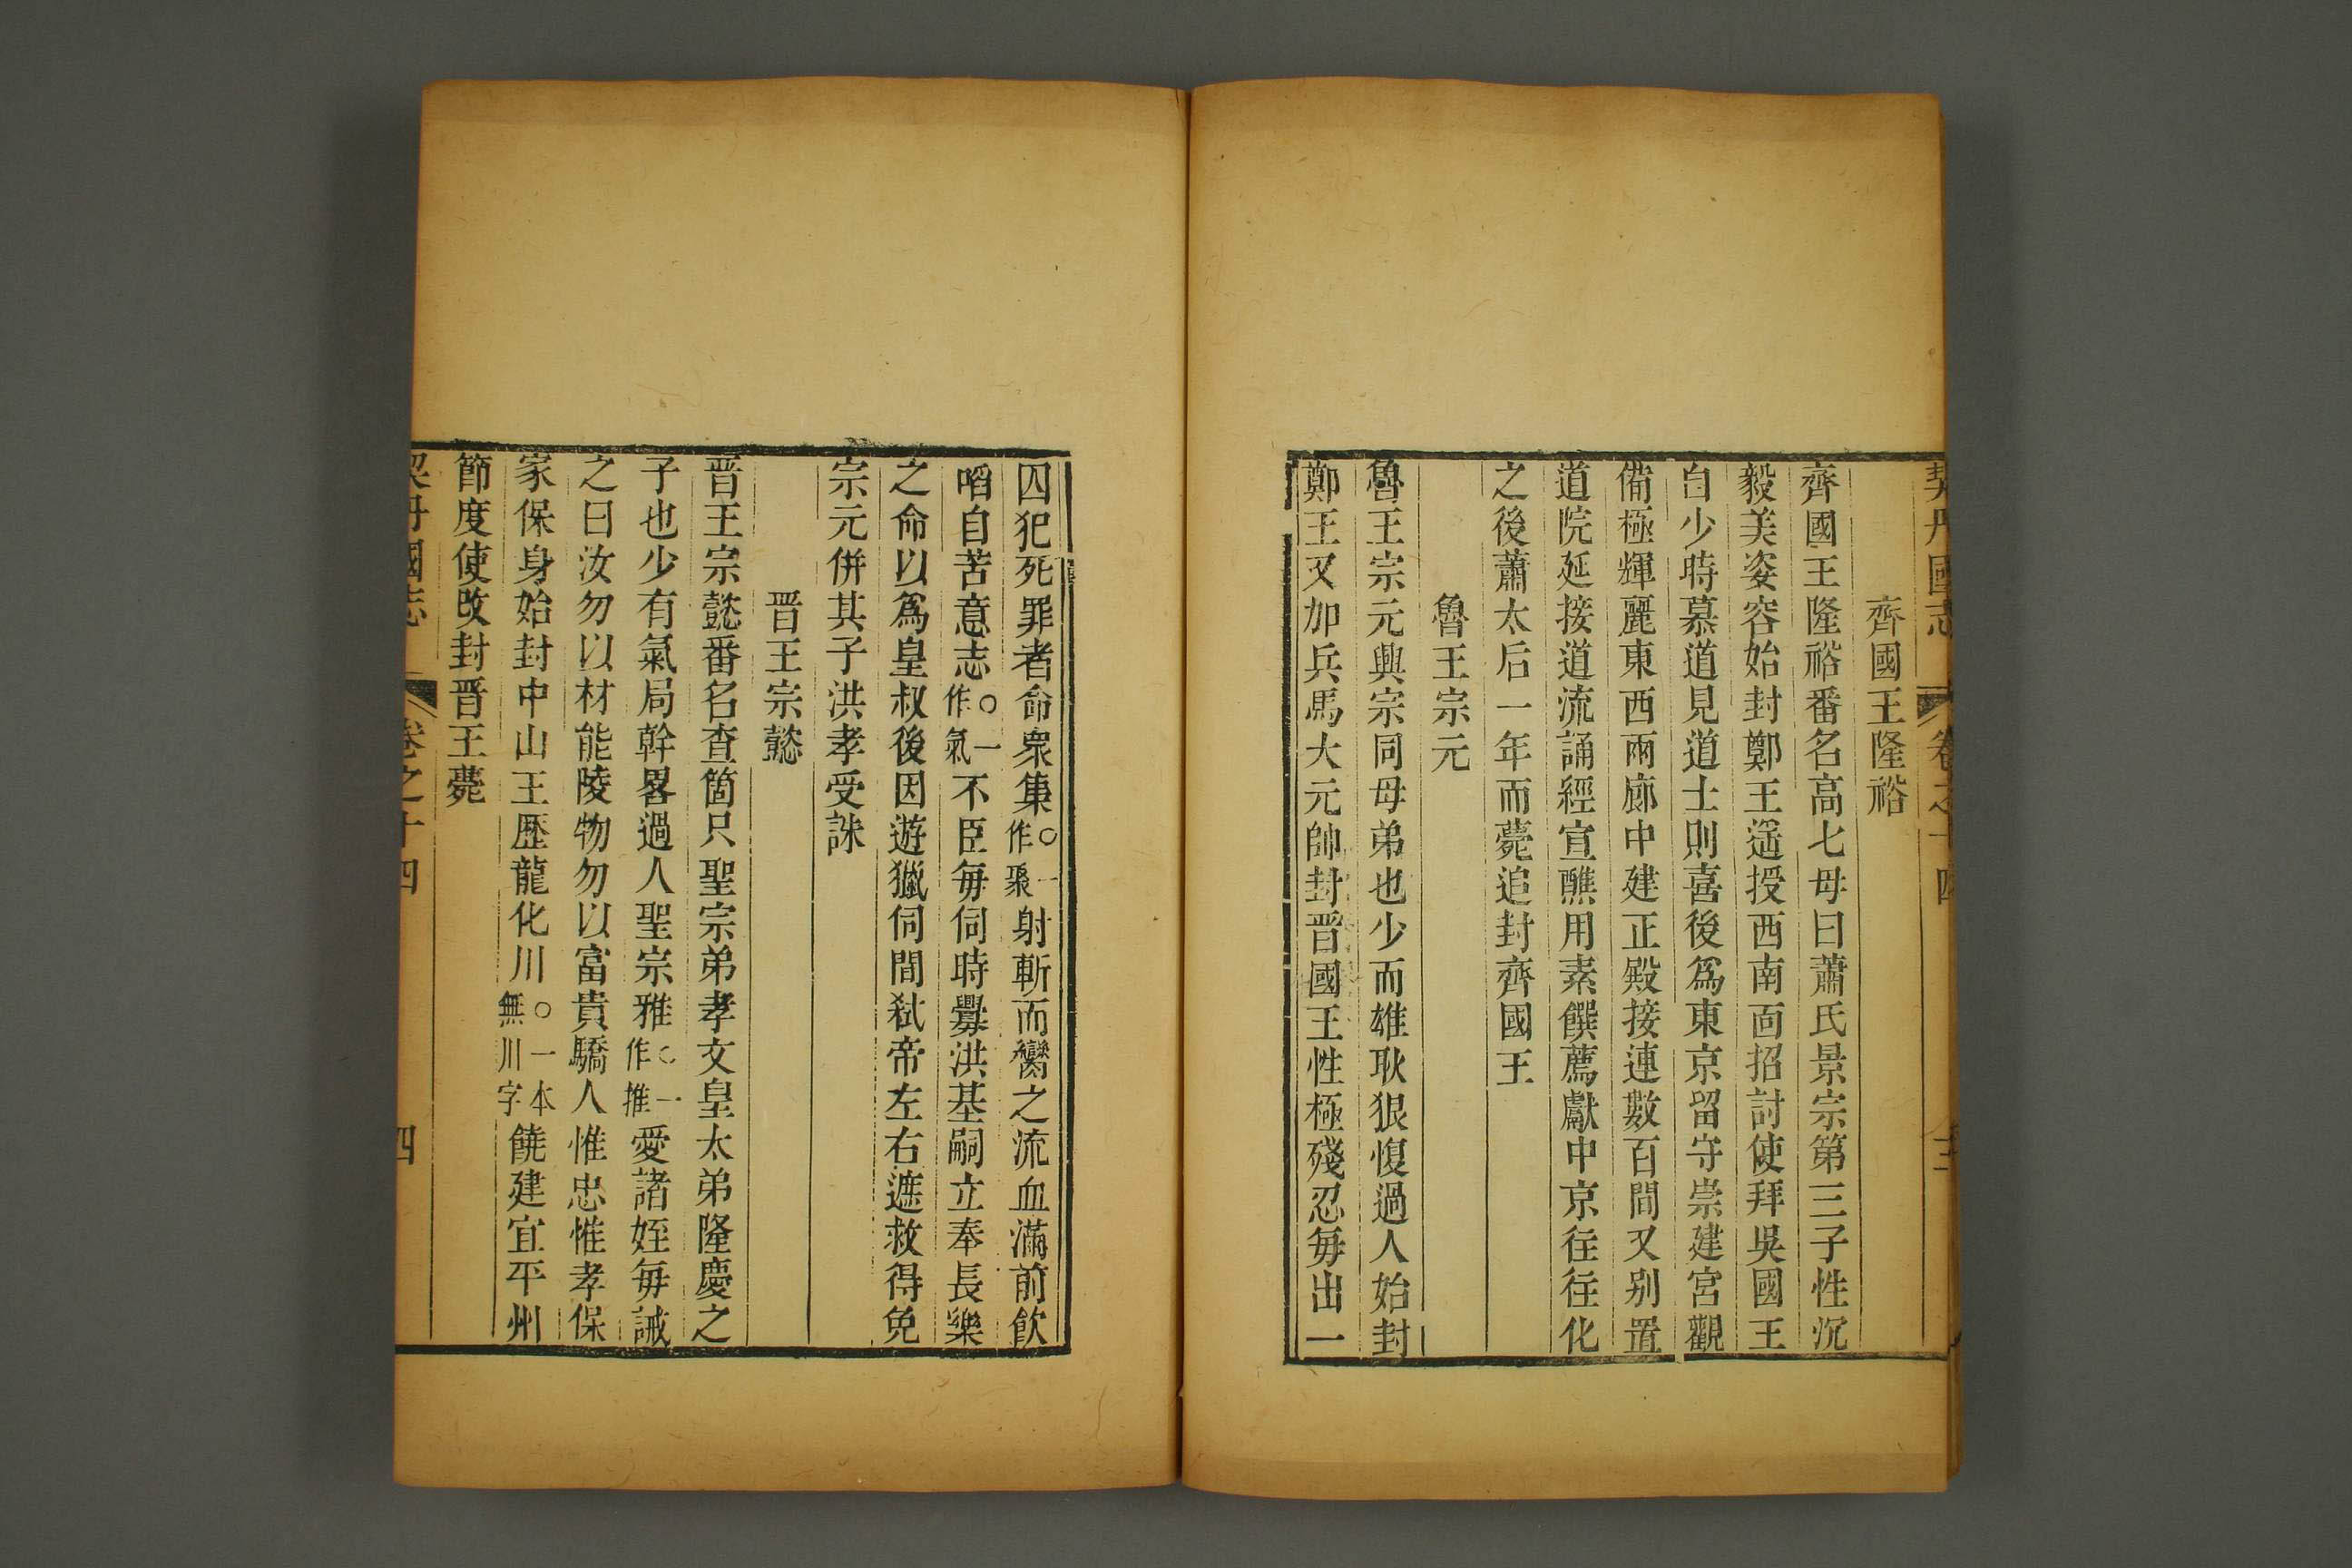 契丹國志 卷之十四
齊國王隆裕
齊國王隆裕番名高七母曰蕭氏景宗第三子性沉
毅美姿容始封鄭王遥授西南面招討使拜吳國王
自少時慕道見道士則喜後爲東京留守崇建宮觀
備極輝麗東西兩廊中建正殿接連數百間又别置
道院延接道流誦經宣醮用素饌薦獻中京徃徃化
之後蕭太后一年而薨追封齊國王
魯王宗元
魯王宗元興宗同母弟也少而雄耿狠愎過人始封
鄭王又加兵馬大元帥封晋國王性極殘忍毎出一
囚犯死罪者命衆集〇一作聚射斬而臠之流血滿前飲
啗自苦意志〇一作氣不臣毎伺時釁洪基嗣立奉長樂
之命以爲皇叔後因遊獵伺間弑帝左右遮救得免
宗元併其子洪孝受誅
晋王宗懿
晋王宗懿番名查箇只聖宗弟孝文皇太弟隆慶之
子也少有氣局幹畧過人聖宗雅〇一作推愛諸姪毎誡
之曰汝勿以材能陵物勿以富貴驕人惟忠惟孝保
家保身始封中山王歷龍化川〇一本無川字饒建宜平州
節度使改封晋王薨
契丹國志 卷之十四 四